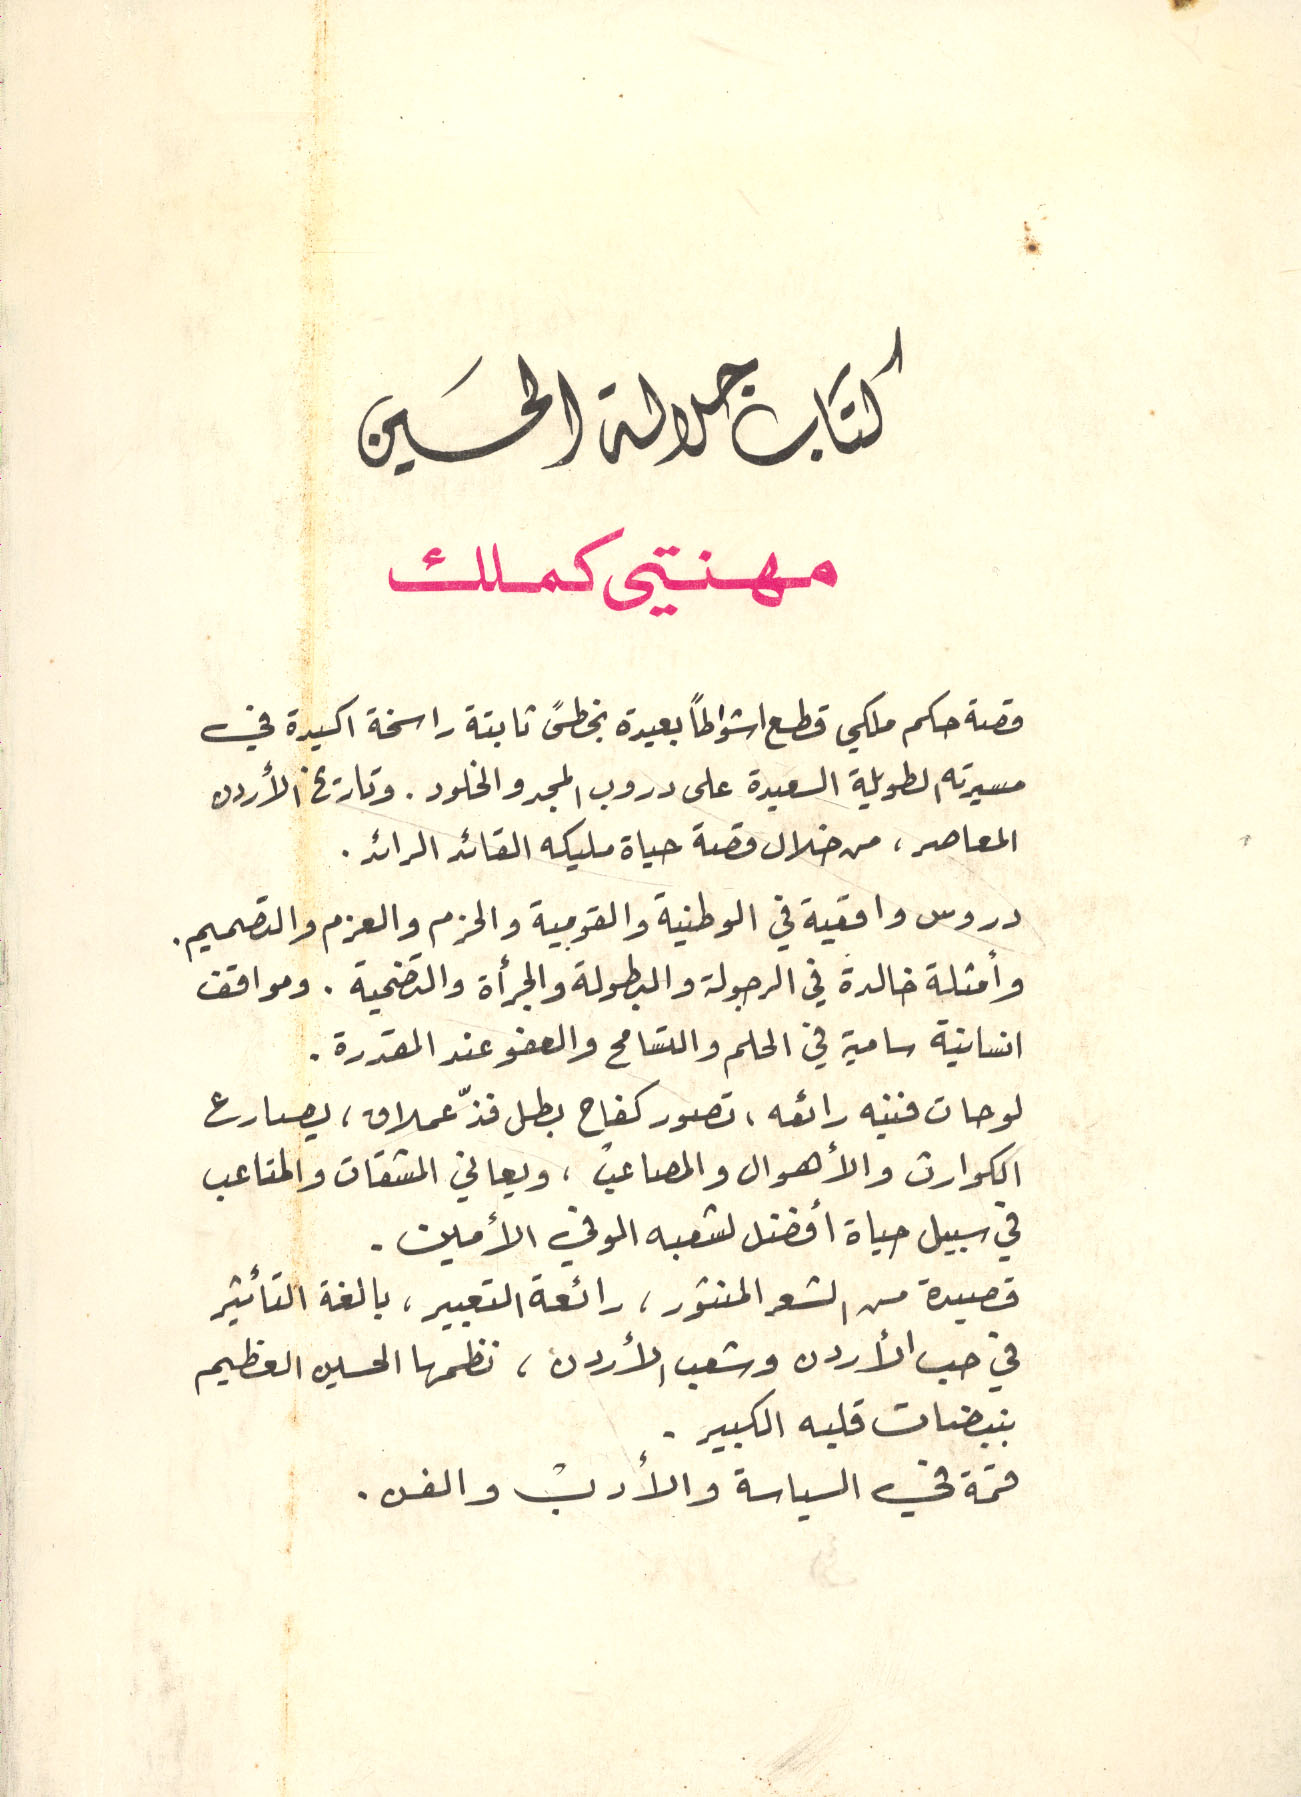 كتاب جلالة الحسين
مهنتي كملك
قصة حكم ملكي قطع اشواطاً بعيدة بخطىً ثابتة راسخة اكيدة في
مسيرته الطويلة السعيدة على دروب المجد والخلود . وتاريخ الأردن
المعاصر ، من خلال قصة حياة مليكه القائد الرائد .
دروس واقعية في الوطنية والقومية والحزم والعزم والتصميم .
وأمثلة خالدة في الرجولة والبطولة والجرأة والتضحية . ومواقف
انسانية سامية في الحلم والتسامح والعفو عند المقدرة .
لوحات فنيه رائعه ، تصور كفاح بطل فذّ عملاق ، يصارع
الكوارث والأهوال والمصاعب ، ويعاني المشقات والمتاعب
في سبيل حياة أفضل لشعبه الوفي الأمين .
قصيدة من الشعر المنثور ، رائعة التعبير ، بالغة التأثير
في حب الأردن وشعب الأردن ، نظمها الحسين العظيم
بنبضات قلبه الكبير .
قمة في السياسة والأدب والفن .